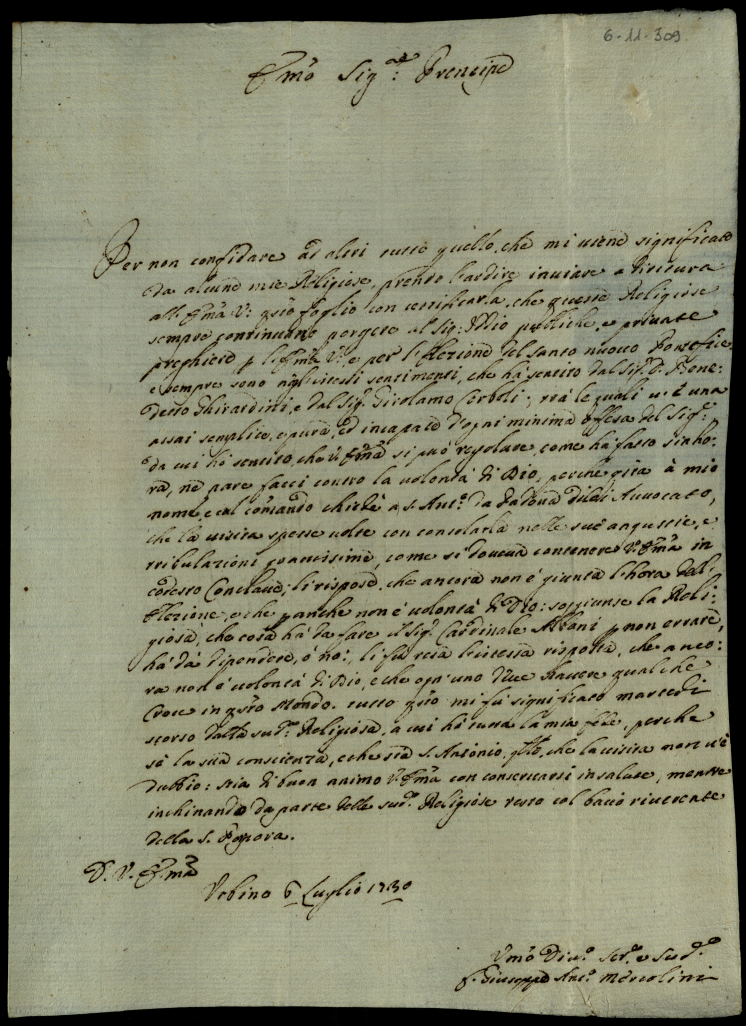 6-11-309
Emo Sig.re Prencipe
Per non confidare ad altri tutto quello, che mi viene significato
da alcune mie Religiose, prendo l'ardire inviare a dirittura
all'Ema V: qsto foglio con certificarla, che queste Religiose
sempre continuano porgere al Sig: Iddio publiche, e private
preghiere p l'Ema V.a e per l'Elezione del Santo nuovo Pontefice
e sempre sono negl'istessi sentimenti, che hà sentito dal Sig.r D. Bene:
detto Ghirardini, e dal Sig.r Girolamo Corboli; trà le quali v'è una
assai semplice, e pura, ed incapace d'ogni minima offesa del Sig.re:
da cui hò sentito, che V. Ema si può regolare, come hà fatto sin'ho:
ra, nè pare facci contro la volontà di Dio, perche gita à mio
nome, e col comando chiede a S. Ant.o da Padova di lei Avvocato,
che la visita spesse volte con consolarla nelle sue angustie, e
tribulazioni grandissime, come si doveva contenere V. Ema in
codesto Conclave; li rispose, che ancora non è giunta l'hora dell'
Elezione, e che p anche non è volontà di Dio: soggiunse la Reli:
giosa, che cosa hà da fare il Sig.r Cardinale Albani p non errare,
hà dà dipendere, ò nò:, li fù data l'istessa risposta, che anco:
ra non è volontà di Dio, e che ogn'uno deve havere qualche
Croce in qsto Mondo. tutto qsto mi fù significato martedì
scorso dalla sud.a Religiosa, a cui hò tutta la mia fede, perche
sò la sua conscienza, e che sia S. Antonio, qllo, che la visita non v'è
dubbio: stia di buon animo V. Ema con conservarsi in salute, mentre
inchinando da parte delle sud.e Religiose resto col bacio riverente
della S. Porpora.
D. V. Ema
Urbino 6 Luglio 1730
Umo Div.o Ser.e e Sud.o
f. Giuseppe Ant.o Mercolini